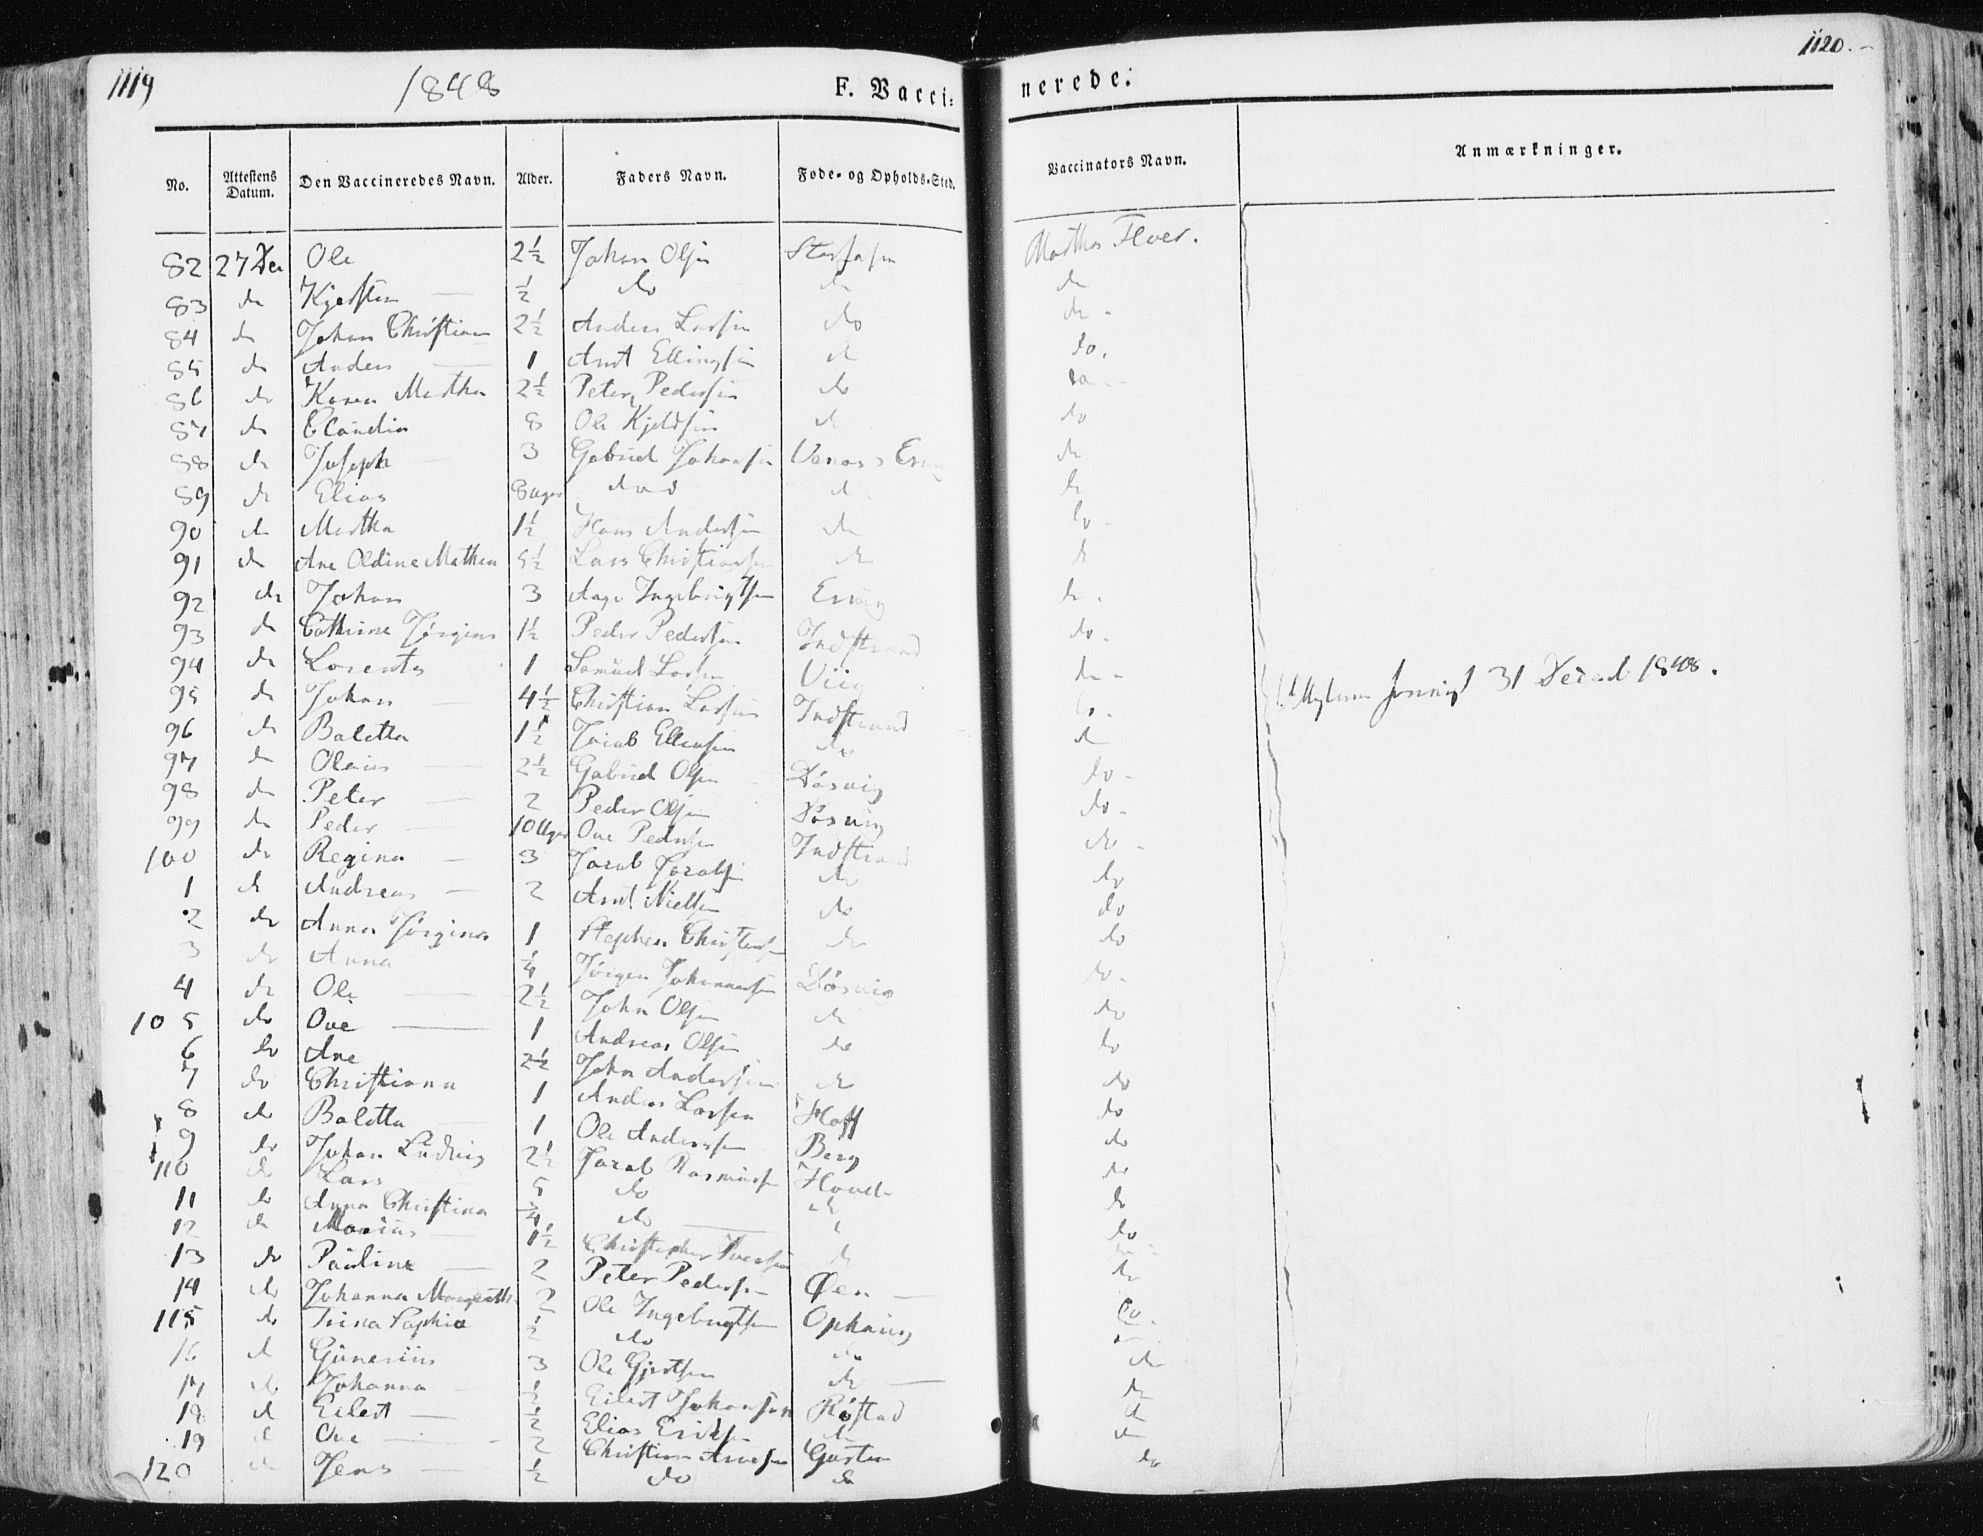 1119
1848
F. Vacci-
nerede.
1120.
No. Attestens Datum. Den Vaccineredes Navn. Alder. Faders Navn. Føde- og Opholds-Sted. Vaccinators Navn. Anmærkninger.
82 27 Ole 2½ Johan Olsen
83 do ½ do do do
84 do Johan Christian 2½ Anders Larsen do do
85 do Anders 1 Arnt Ellingsen do do.
86 do Karen Martha 2½ Peter Pedersen do
87 do Claudia 8 Ole Kjeldsen do do
88 do Joseph 3 Gabriel Johansen do
89 do Elias 8 Uger do do
90 do Martha 1½ Hans Andersen do do
91 do Ane Oldine Mathea 5½ Lars Christiansen do do
92 do Johan 3 Aage Ingebrigtsen do
93 do Cathrine 1½ Peder Pedersen Indstrand do
94 do Lorents 1 Samuel Larsen Viig do
95 do Johan 4½ Christian Larsen Indstrand do
96 do Baletta 1½ Jacob Ellensen do do
97 do Olaus 2½ Gabriel Olsen Døsvig do
98 do Peter 2 Peder Olsen Døsvig do
99 do Peder 10 Uger Ove Pedersen Indstrand do
100 do Regina 3 Jacob Jacobsen do do
1 do Andreas 2 Arnt Nielsen do do
2 do Anna Jørgina 1 Stephen do do
3 do Anna ¼ Jørgen Johannesen Døsvig do
4 do Ole 2½ John Olsen do do
105 do Ove 1 Andreas Olsen do do
6 do Ane 2½ John Andersen do do
7 do Christiana 1 Anders Larsen Hoff do
8 do Baletta 1 Ole Andersen Berg do
9 do Johan Ludvig 2½ Jacob Rasmussen do
110 do Lars 5 do do do
11 do Anna Christina ¾ do do
12 do Marius 1½ Christopher Iversen do do
13 do Pauline 2 Peter Pedersen Øen do
14 do Johanna Margreth 2 Ole Ingebrigtsen Ophaug do
115 do Trina Sophia ½ do
16 do Gunerius 3 Ole Gjertsen do do
17 do Johanna Eilert Johansen Røstad do
18 do Eilert ½ Elias Eriksen do do
19 do Ove 2 Christian Arnesen Garten do
120 do Jens ½ do do do
31 Decemb 1848.